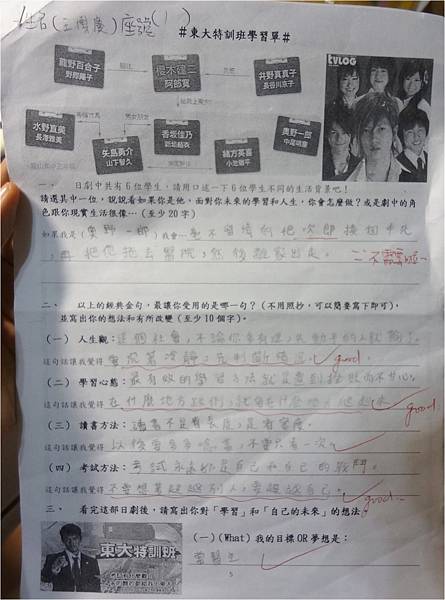 姓名(王國慶)座號(1)
#東大特訓班學習單#
TVLOG
龍野百合子
野際陽子
櫻木建二
阿部寬
井野真真子
長谷川京子
水野直美
長澤雅美
矢島勇介
山下智久
男女朋友
香坂佳乃
新垣結衣
緒方英喜
小池徹平
奧野一郎
中尾明慶
一、 日劇中共有 6 位學生,請用口述一下 6 位學生不同的生活背景吧!
請選其中一位,說說看如果你是他,面對你未來的學習和人生,你會怎麼做?或是劇中的角
色跟你現實生活很像…(至少 20 字)
如果我是(奧野一郎)我會…毫不留情的把次郎揍個半死
,再把他拖去醫院,然後離家出走。
不需要啦~
二、 以上的經典金句,最讓你受用的是哪一句?(不用照抄,可以簡要寫下即可),
並寫出你的想法和有所改變(至少 10 個字)。
(一) 人生觀:這個社會,不論你多有理,先動手的人就輸了。
這句話讓我覺得 good
(二) 學習心態:最有效的學習方法就是
這句話讓我覺得 在什麼地方跌倒,就要在什麼地方爬起來 good
(三) 讀書方法:讀書不是看長度,是看密度。
這句話讓我覺得 以後要多多唸書,不要只看一次。
(四) 考試方法:考試永遠都是自己和自己的戰鬥。
這句話讓我覺得 不要想著超越別人,要超越自己。 good
三、 看完這部日劇後,請寫出你對「學習」和「自己的未來」的想法。
東大特訓班
(一)(What) 我的目標 OR 夢想是:
當醫生